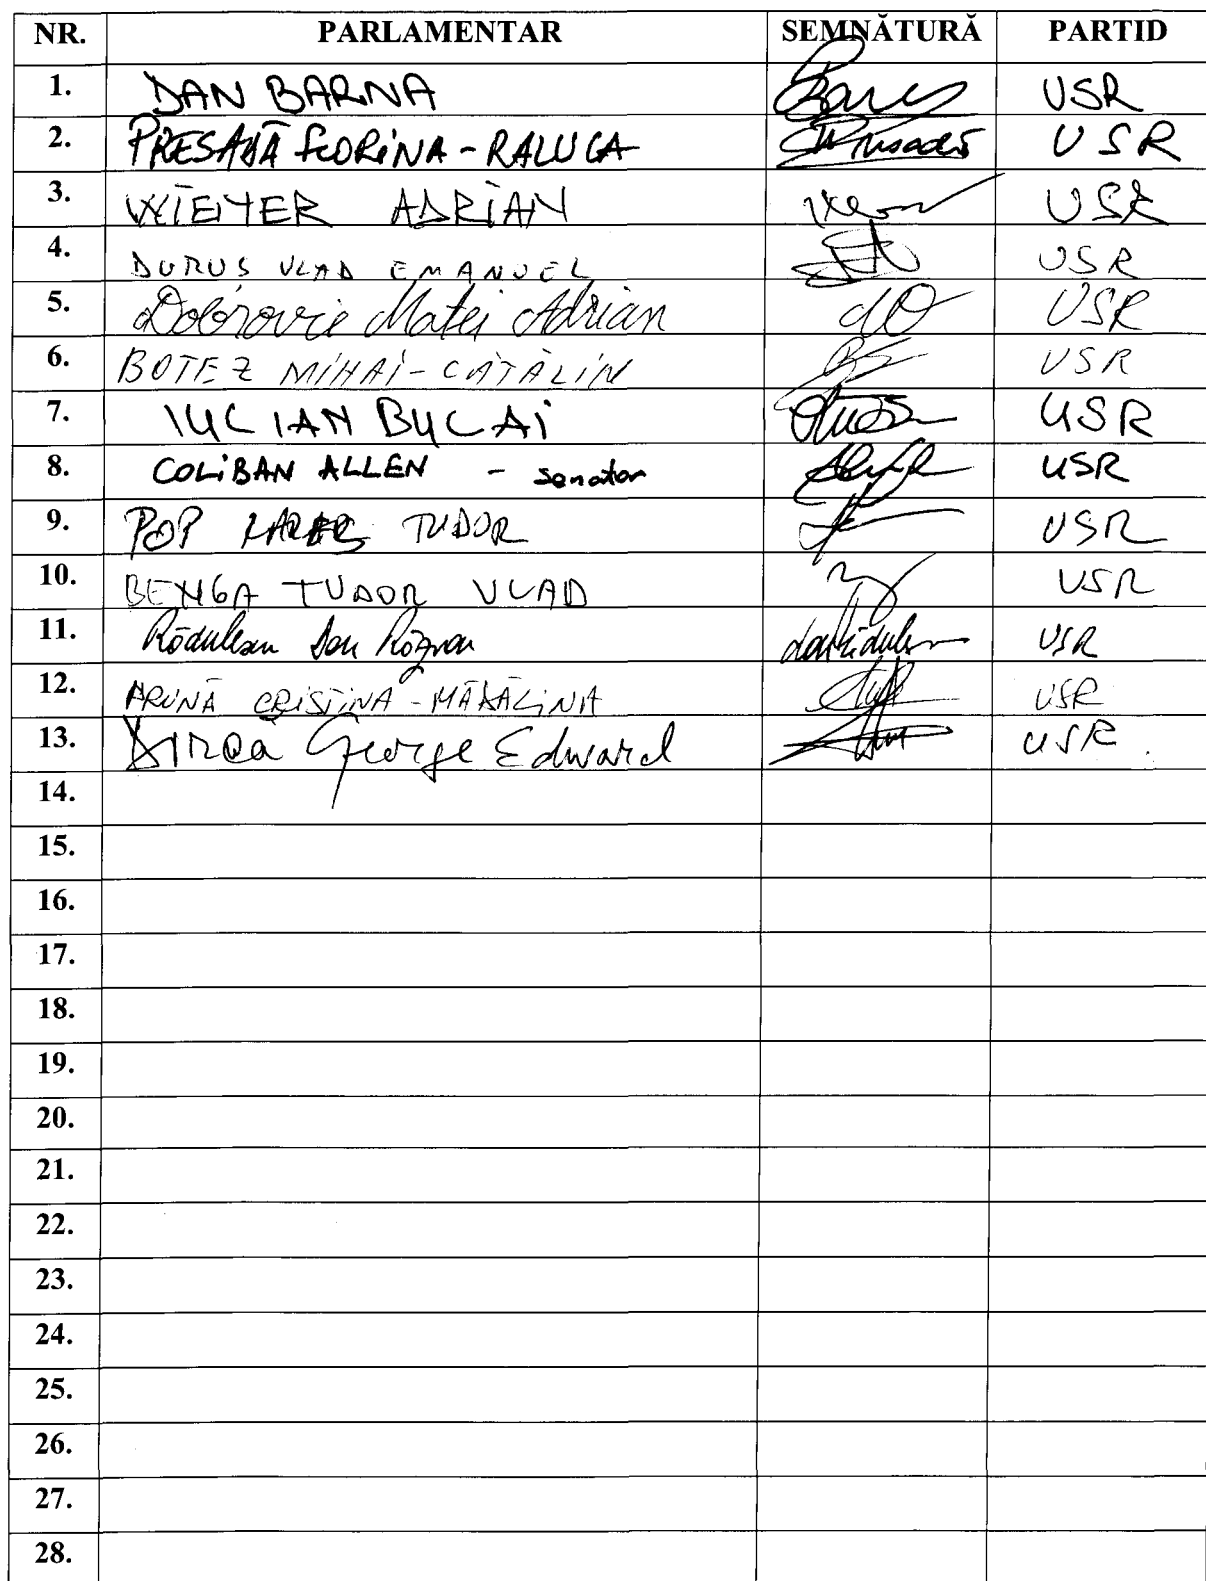 NR. PARLAMENTAR SEMNĂTURĂ PARTID
1. DAN BARNA USR
2. PRESADĂ FLORINA-RALUCA USR
3. WIENER ADRIAN USR
4. DURUS VLAD EMANUEL USR
5. Dobrovie Matei Adrian USR
6. BOTEZ MIHAI-CĂTĂLIN USR
7. IULIAN BULAI USR
8. COLIBAN ALLEN - senator USR
9. POP RAREȘ TUDOR USR
10. BENGA TUDOR VLAD USR
11. Rădulescu Dan Răzvan USR
12. PRUNĂ CRISTINA-MĂDĂLINA USR
13. Dircă George Edward USR
14.
15.
16.
17.
18.
19.
20.
21.
22.
23.
24.
25.
26.
27.
28.